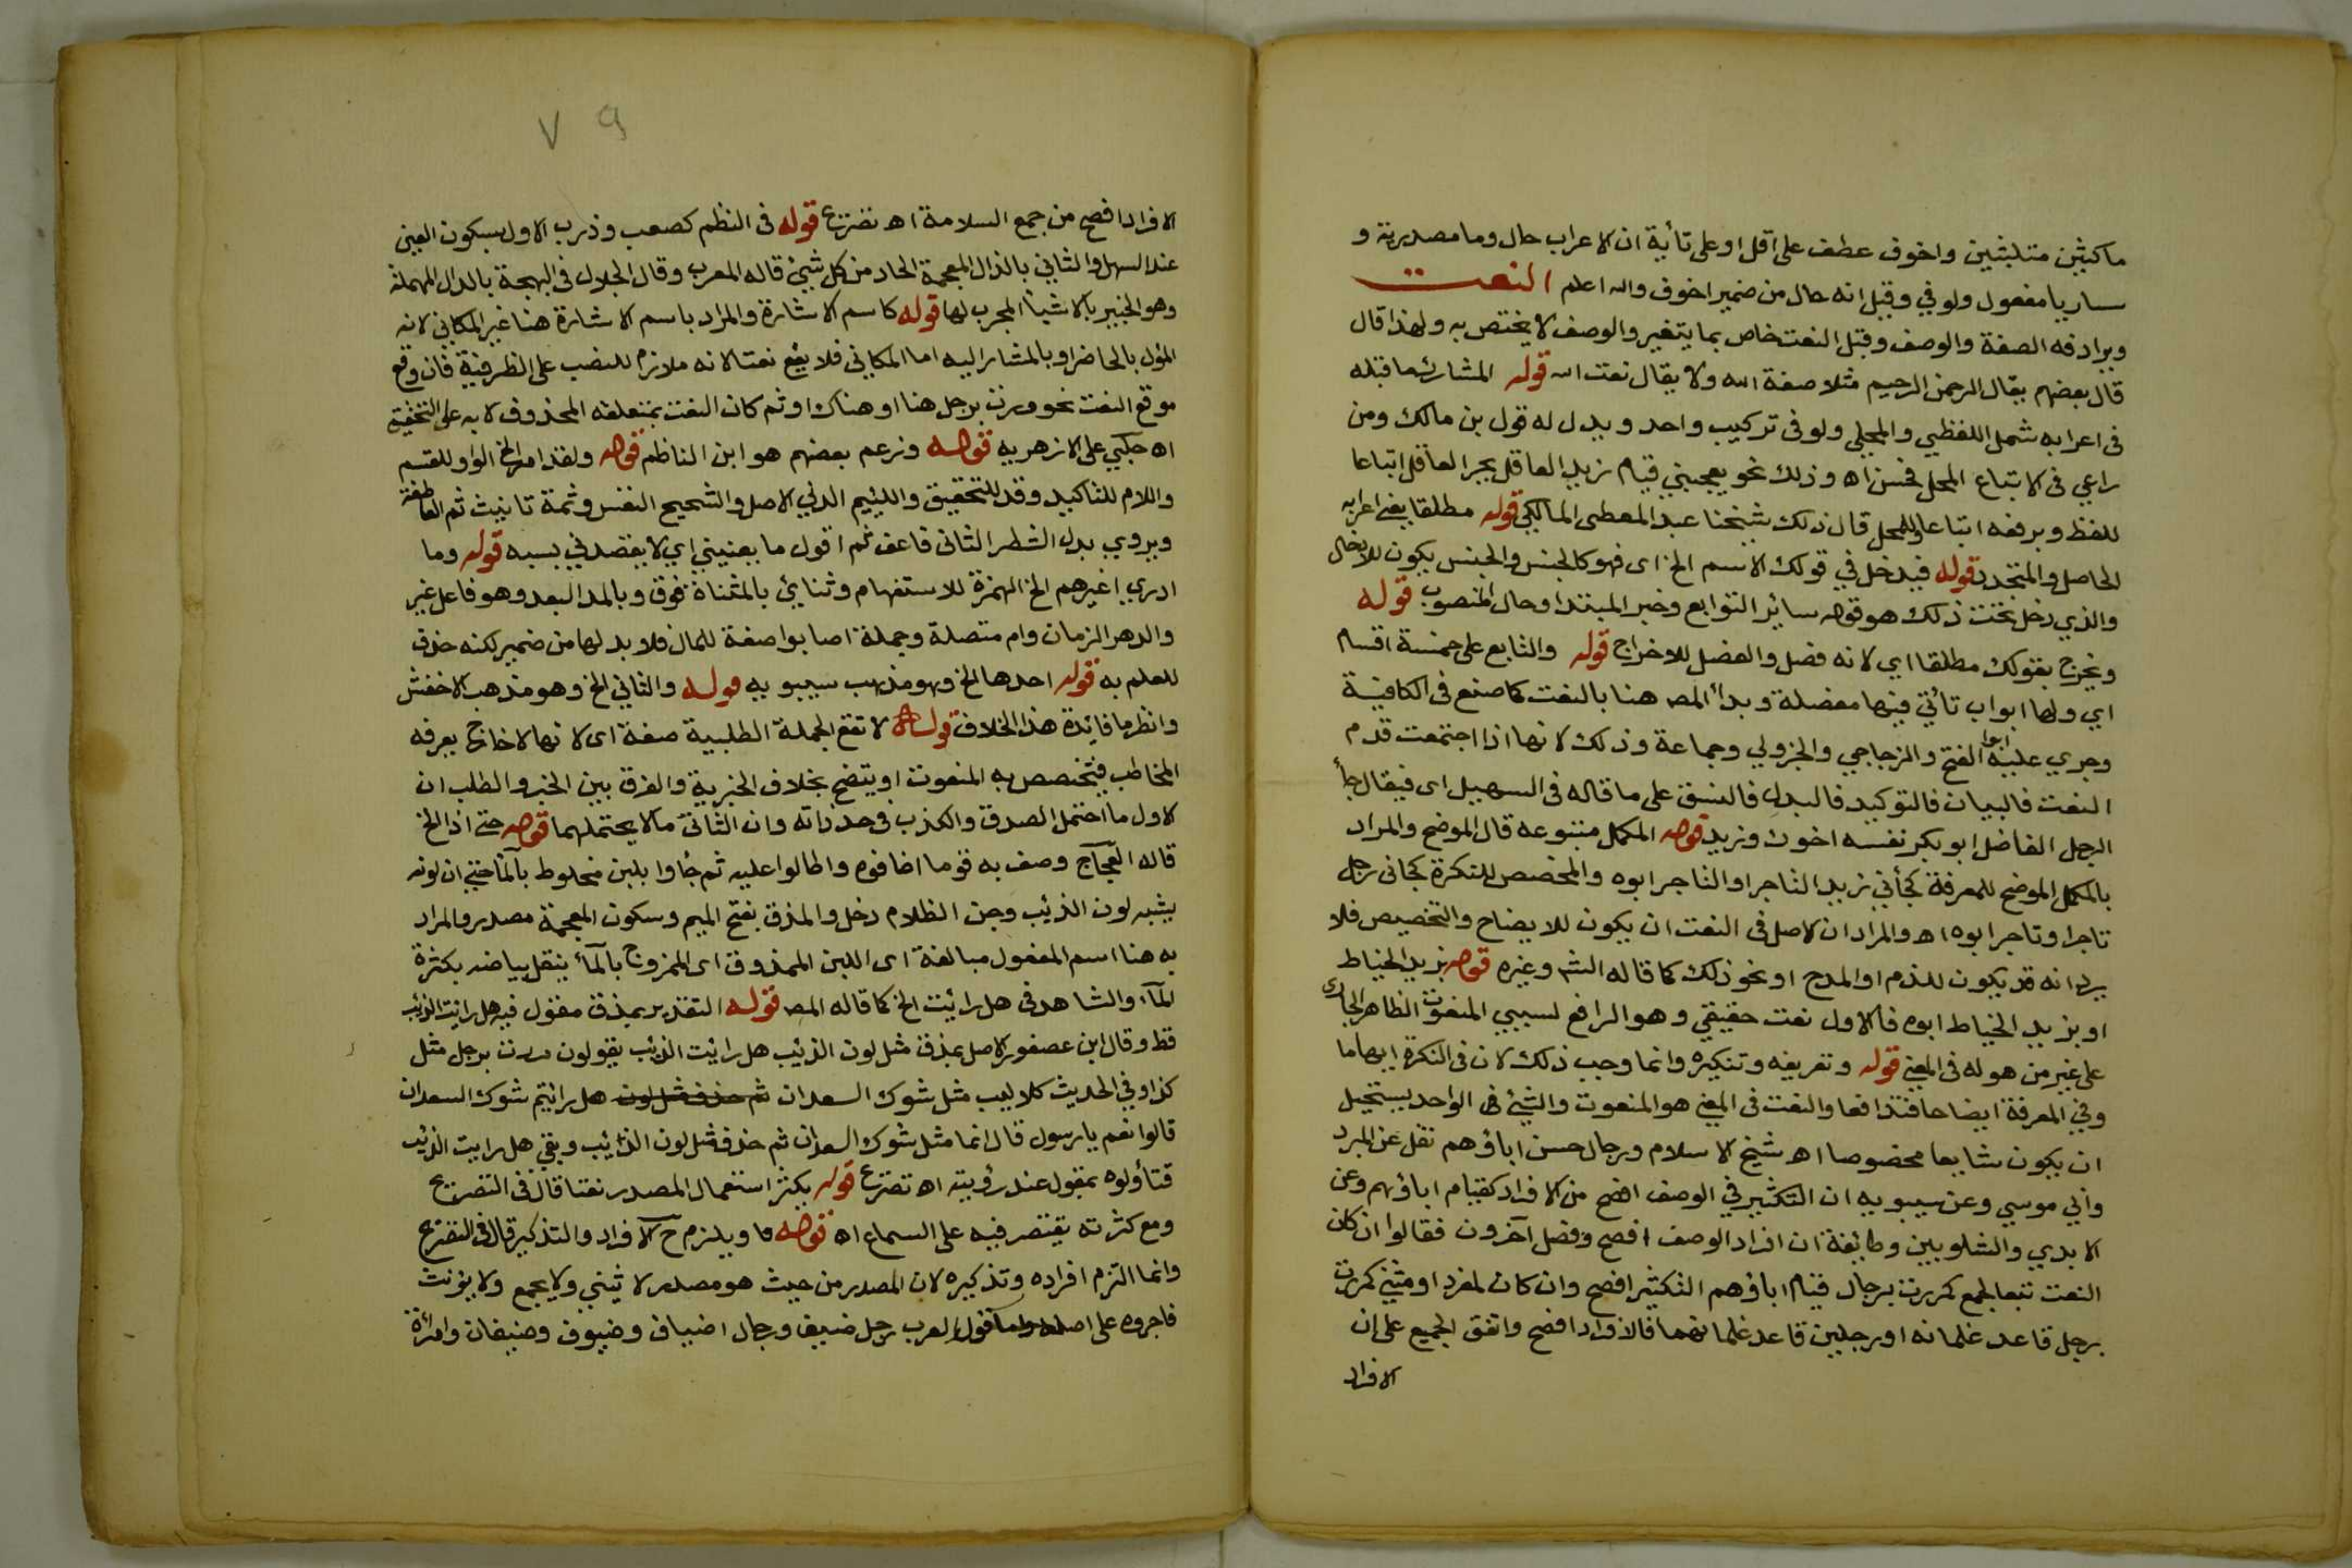 ماكثين متلبثين واخوف عطف على اقل او على تأية ان الاعراب حال وما مصدرية و
ساريا مفعول ولو في وقيل انه حال من ضمير اخوف والله اعلم النعت
ويرادفه الصفة والوصف وقيل النعت خاص بما يتغير والوصف لا يختص به ولهذا قال
قال بعضهم يقال الرحمن الرحيم مثلا صفة الله ولا يقال نعت الله قوله المشارك ما قبله
فى اعرابه شمل اللفظي والمحلي ولو فى تركيب واحد ويدل له قول بن مالك ومن
راعي فى الاتباع المحل فحسن اه وذلك نحو يعجبني قيام زيد العاقل بجر العاقل اتباعا
للفظ وبرفعه اتباعا للمحل قال ذلك شيخنا عبد المعطى المالكي قوله مطلقا يعنى اعرابه
الحاصل والمتجدد قوله فيدخل في قولك الاسم الخ اى فهو كالجنس والجنس يكون للادخال
والذي دخل تحت ذلك هو قوله سائر التوابع وخبر المبتدا وحال المنصوب قوله
ويخرج بقولك مطلقا اي لانه فصل والفصل للاخراج قوله والتابع على خمسة اقسام
اي ولها ابواب تأتي فيها مفصلة وبدأ المص هنا بالنعت كما صنع فى الكافية
وجري عليه ابوا الفتح والزجاجي والجزولي وجماعة وذلك لانها اذا اجتمعت قدم
النعت فالبيان فالتوكيد فالبدل فالنسق على ما قاله فى التسهيل اى فيقال جأ
الرجل الفاضل ابو بكر نفسه اخوك وزيد قوله المكمل متبوعه قال الموضح والمراد
بالمكمل الموضح للمعرفة كجأني زيد التاجر او التاجر ابوه والمخصص للنكرة كجانى رجل
تاجر او تاجر ابوه اه والمراد ان الاصل فى النعت ان يكون للايضاح والتخصيص فلا
يرد انه قد يكون للذم او المدح او نحو ذلك كما قاله الش وغيره قوله بزيد الخياط
او بزيد الخياط ابوه فالاول نعت حقيقي وهو الرافع لسببي المنعوت الظاهر الجاري
على غير من هو له فى المعنى قوله وتعريفه وتنكيره وانما وجب ذلك لان فى النكرة ايهاما
وفي المعرفة ايضاحا فتدافعا والنعت فى المعنى هو المنعوت والشيء فى الواحد يستحيل
ان يكون شايعا مخصوصا اه شيخ الاسلام ورجال حسن اباؤهم نقل عن المبرد
وابي موسي وعن سيبويه ان التكثير في الوصف افصح من الافراد كقيام اباؤهم وعن
الابدي والشلوبين وطائفة ان افراد الوصف افصح وفصل آخرون فقالوا ان كان
النعت تتبعا لجمع كمررت برجال قيام اباؤهم التكثير افصح وان كان لمفرد او مثنى كمررت
برجل قاعد غلمانه او رجلين قاعد غلمانهما فالافراد افصح واتفق الجميع على ان
الافراد
٧٩
الافراد افصح من جمع السلامة اه تصريح قوله فى النظم كصعب وذرب الاول بسكون العين
عند السهل والثاني بالذال المعجمة الحاد من كل شيئ قاله المعرب وقال الجلال فى البهجة بالدال المهملة
وهو الخبير بالاشيأ المجرب لها قوله كاسم الاشارة والمراد باسم الاشارة هنا غير المكاني لانه
المؤل بالحاضر او بالمشار اليه اما المكاني فلا يقع نعتا لانه ملازم للنصب على الظرفية فان وقع
موقع النعت نحو مررت برجل هنا او هناك او ثم كان النعت بمتعلقه المحذوف لا به على التحقيق
اه حلبي على الازهريه قوله وزعم بعضهم هو ابن الناظم قوله ولقد امر الخ الواو للقسم
واللام للتاكيد وقد للتحقيق واللئيم الدني الاصل والشحيح النفس وثمة تانيث ثم العاطفة
ويروي بدل الشطر الثانى فاعف ثم اقول ما يعنيني اي لا يقصدني بسبه قوله وما
ادري اغيرهم الخ الهمزة للاستفهام وثنائ بالمثناة فوق وبالمد البعد وهو فاعل غير
والدهر الزمان وام متصلة وجملة اصابوا صفة للمال فلا بد لها من ضمير لكنه حذف
للعلم به قوله احدها الخ وهو مذهب سيبويه قوله والثاني الخ وهو مذهب الاخفش
وانظر ما فائدة هذا الخلاف قوله لا تقع الجملة الطلبية صفة اى لانها لا خارج يعرفه
المخاطب فيتخصص به المنعوت او يتضح بخلاف الخبرية والفرق بين الخبر والطلب ان
الاول ما احتمل الصدق والكذب فى حد ذاته وان الثانى ما لا يحتملهما قوله حتى اذا الخ
قاله العجاج وصف به قوما اضافوه واطالوا عليه ثم جاؤا بلبن مخلوط بالمآ حتى ان لونه
يشبه لون الذئب وجن الظلام دخل والمذق بفتح الميم وسكون المعجمة مصدر والمراد
به هنا اسم المفعول مبالغة اى اللبن الممذوق اى الممزوج بالمآ ينقل بياضه بكثرة
المآء والشاهد فى هل رائيت الخ كما قاله المص قوله التقدير بمذق مقول فيه هل رايت الذئب
قط وقال ابن عصفور الاصل بمذق مثل لون الذئيب هل رائيت الذئب يقولون مررت برجل مثل
كذا وفي الحديث كلاليب مثل شوك السعدان ثم حذف مثل لون هل رائيتم شوك السعدان
قالوا نعم يا رسول قال انما مثل شوك السعدان ثم حذف مثل لون الذئيب وبقي هل رايت الذئيب
فتأولوه بمقول عند رؤيته اه تصريح قوله يكثر استعمال المصدر نعتا قال فى التصريح
ومع كثرته يقتصر فيه على السماع اه قوله ما ويلزم ح الافراد والتذكير قال فى التصريح
وانما التزم افراده وتذكيره لان المصدر من حيث هو مصدر لا يثني ولا يجمع ولا يؤنث
فاجروه على اصله واما قول العرب رجل ضيف ورجال اضياف وضيوف وضيفان وامرأة